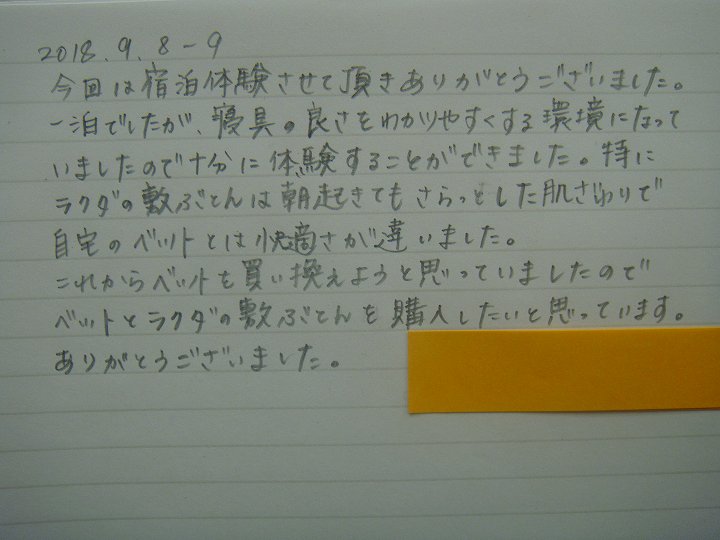 2018.9.8-9
今回は宿泊体験させて頂きありがとうございました。
一泊でしたが、寝具の良さをわかりやすくする環境になって
いましたので十分に体験することができました。特に
ラクダの敷ぶとんは朝起きてもさらっとした肌ざわりで
自宅のベットとは快適さが違いました。
これからベットを買い換えようと思っていましたので
ベットとラクダの敷ぶとんを購入したいと思っています。
ありがとうございました。